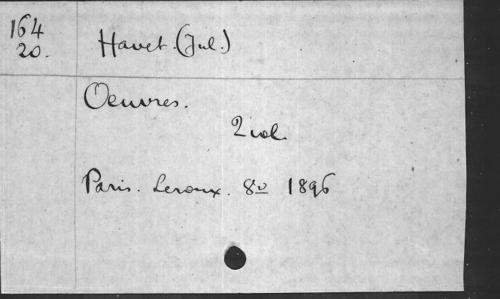 164
20.
Havet. (Jul.)
Oeuvres.
2 vol.
Paris. Leroux. 8º 1896